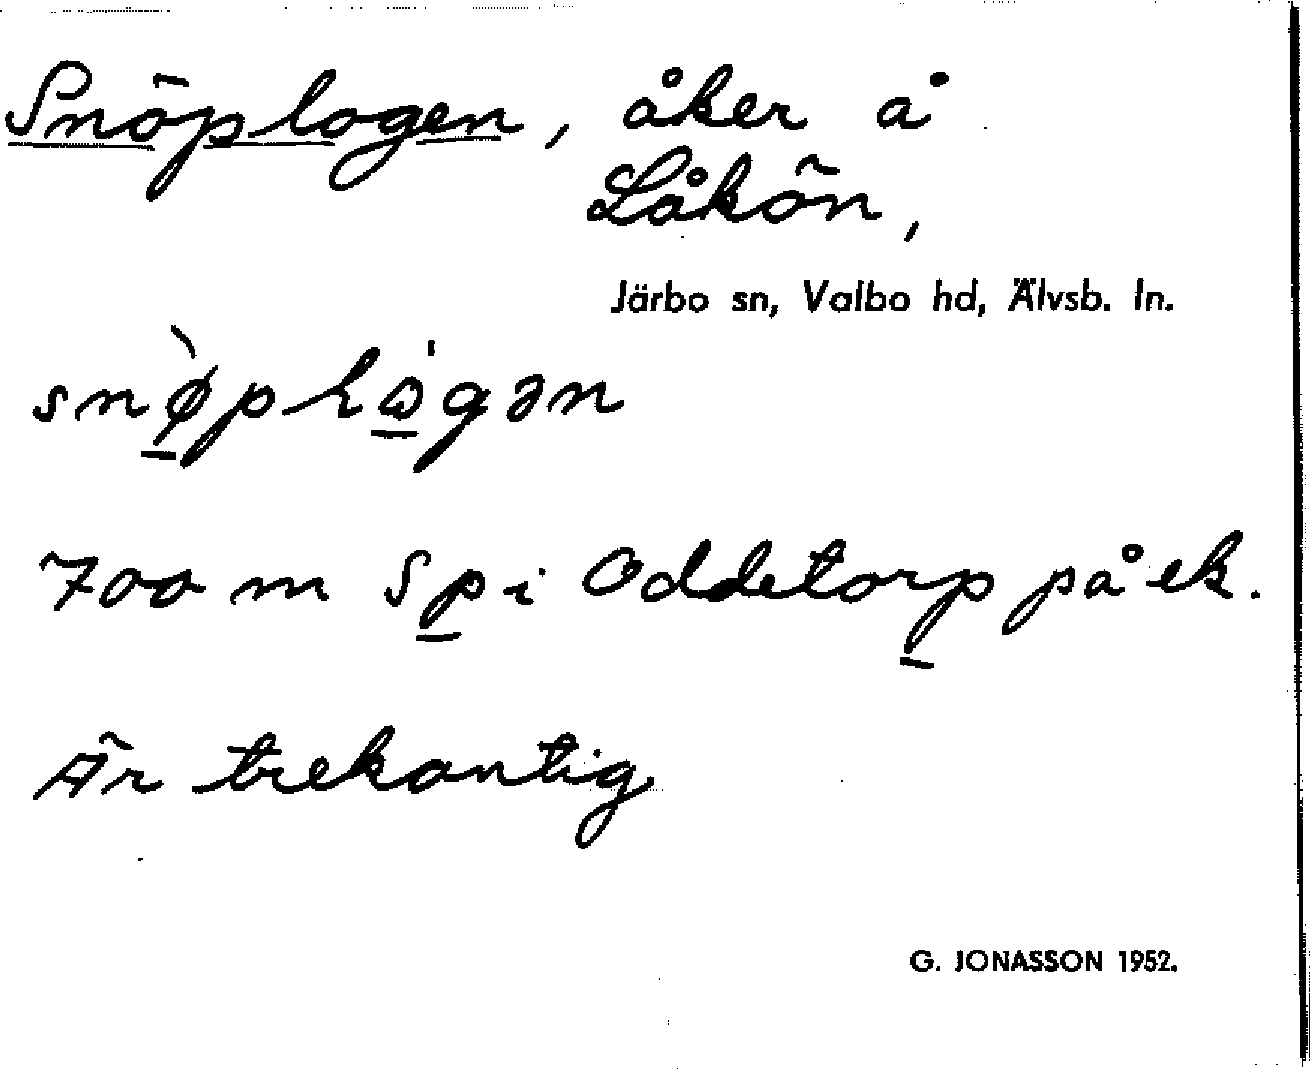 Snöplogen, åker å
Låkön,
Järbo sn, Valbo hd, Älvsb. ln.
700 m S p i Oddetorp på ek.
Är trekantig
G. JONASSON 1952.